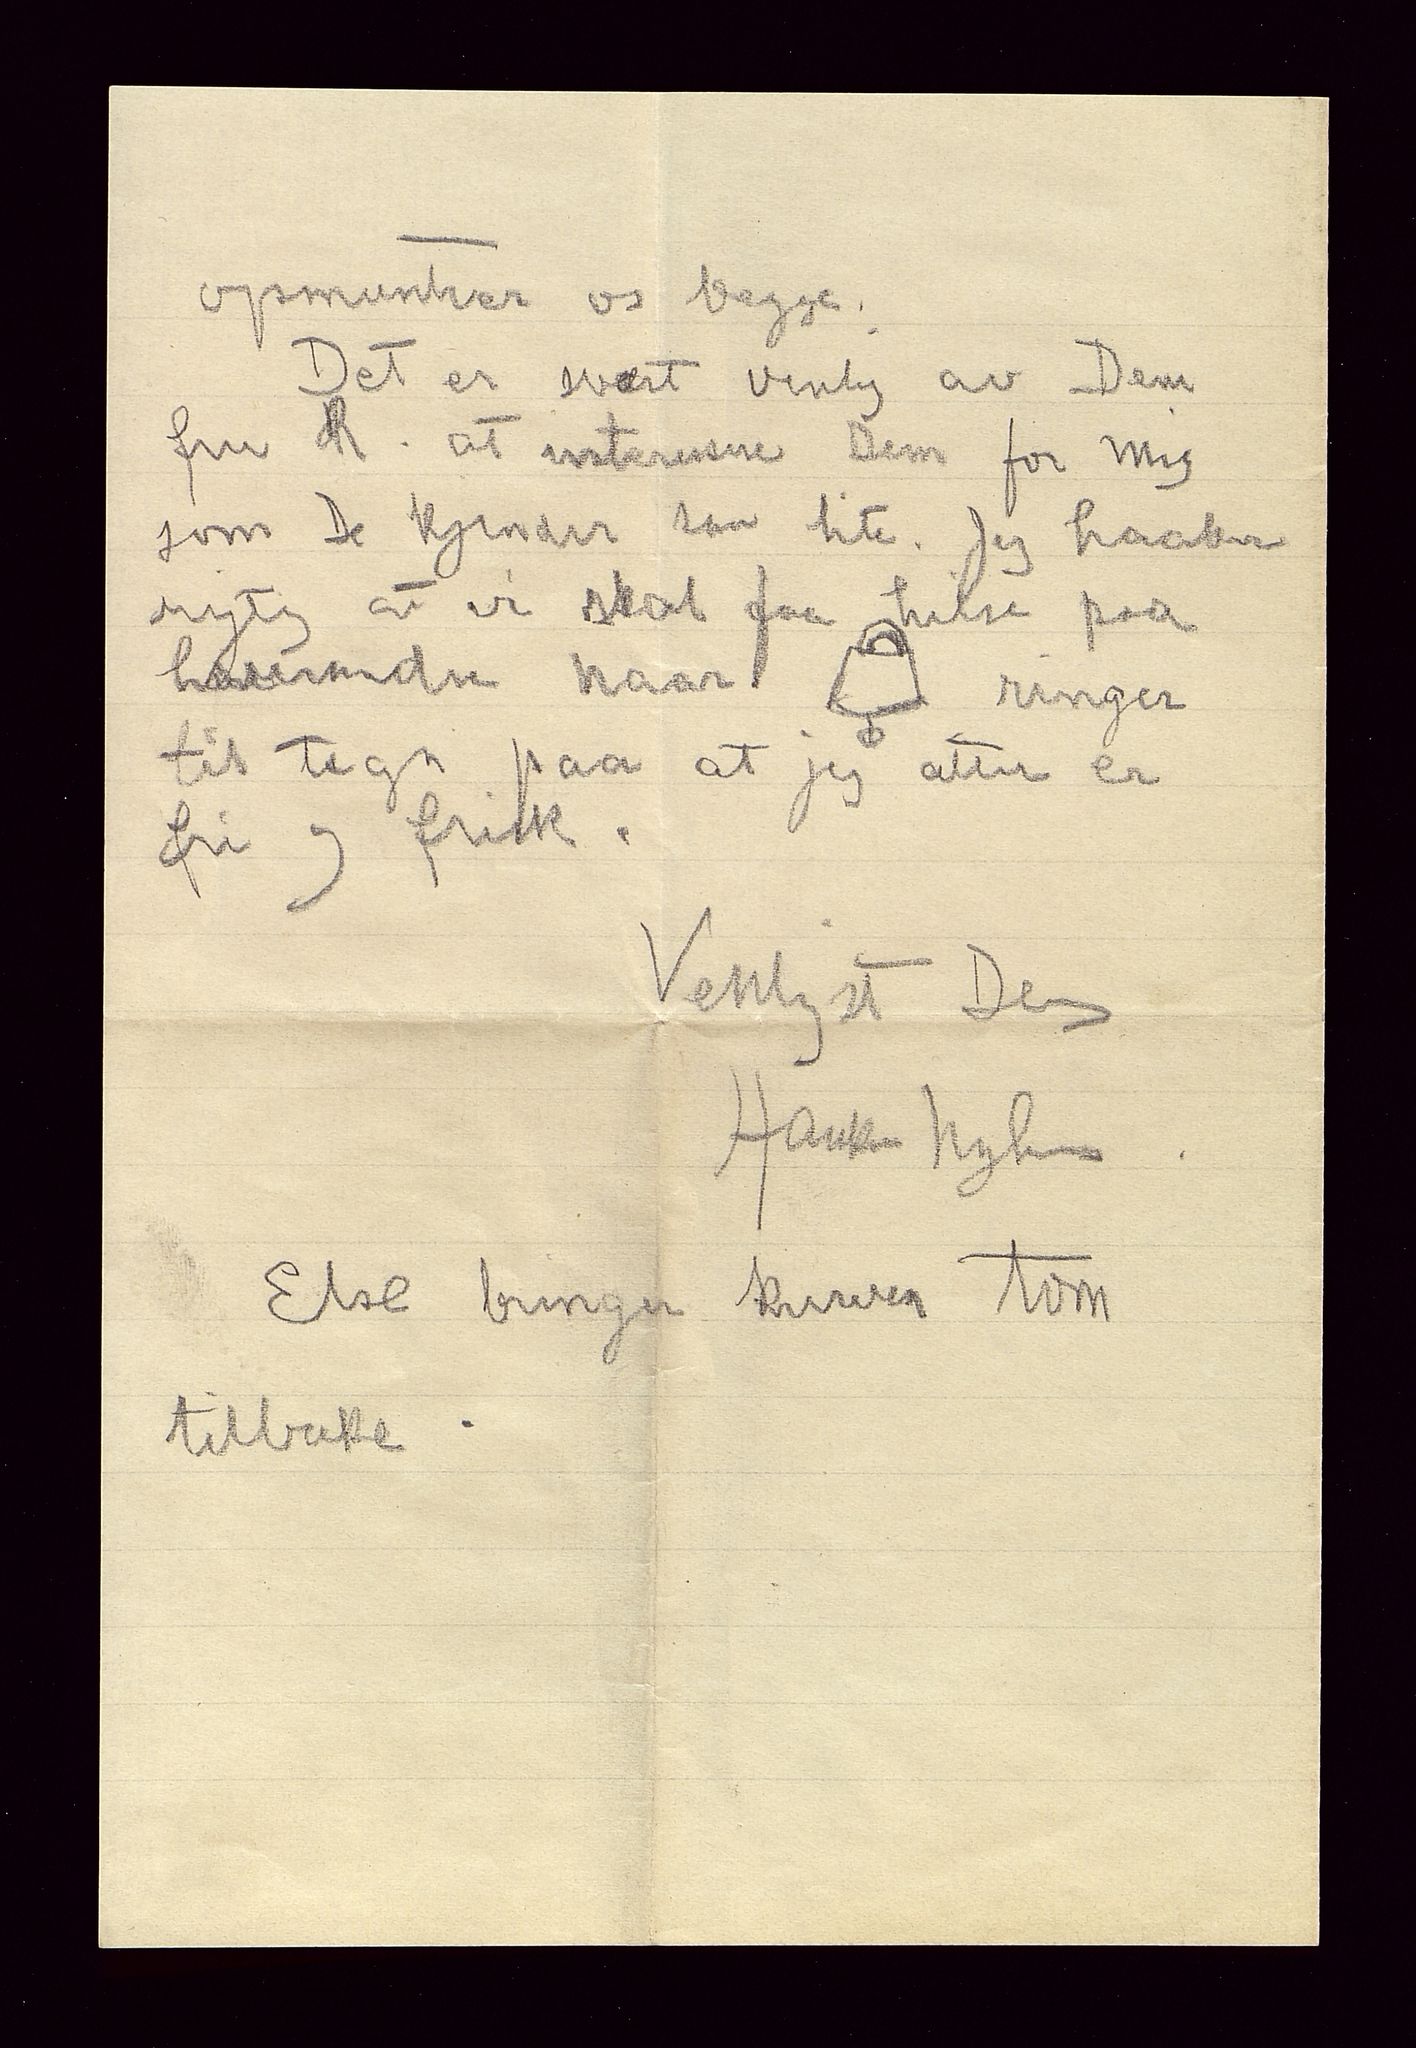 opsmuntrer os begge.
Det er svært venlig av Dem
fru R. at interessere Dem for mig
som De kjender saa lite. Jeg haaber
rigtig at vi skal faa hilse paa
hverandre naar ringer
til tegn paa at jeg atter er
fri og frisk.
Venligst Deres
Haakon
Else bringer kurven tom
tilbake.